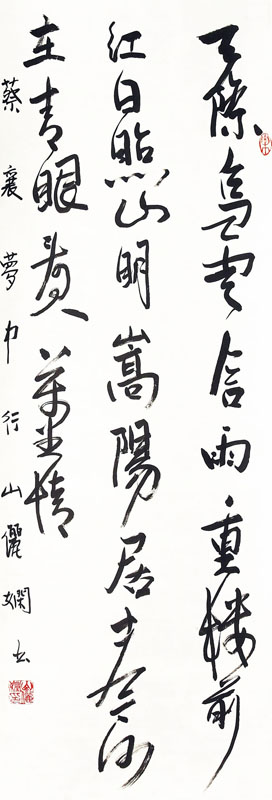 天際烏雲含雨重樓前
紅日照山明嵩陽居士今何
在青眼看人萬里情
蔡襄夢中行山儷嫻書